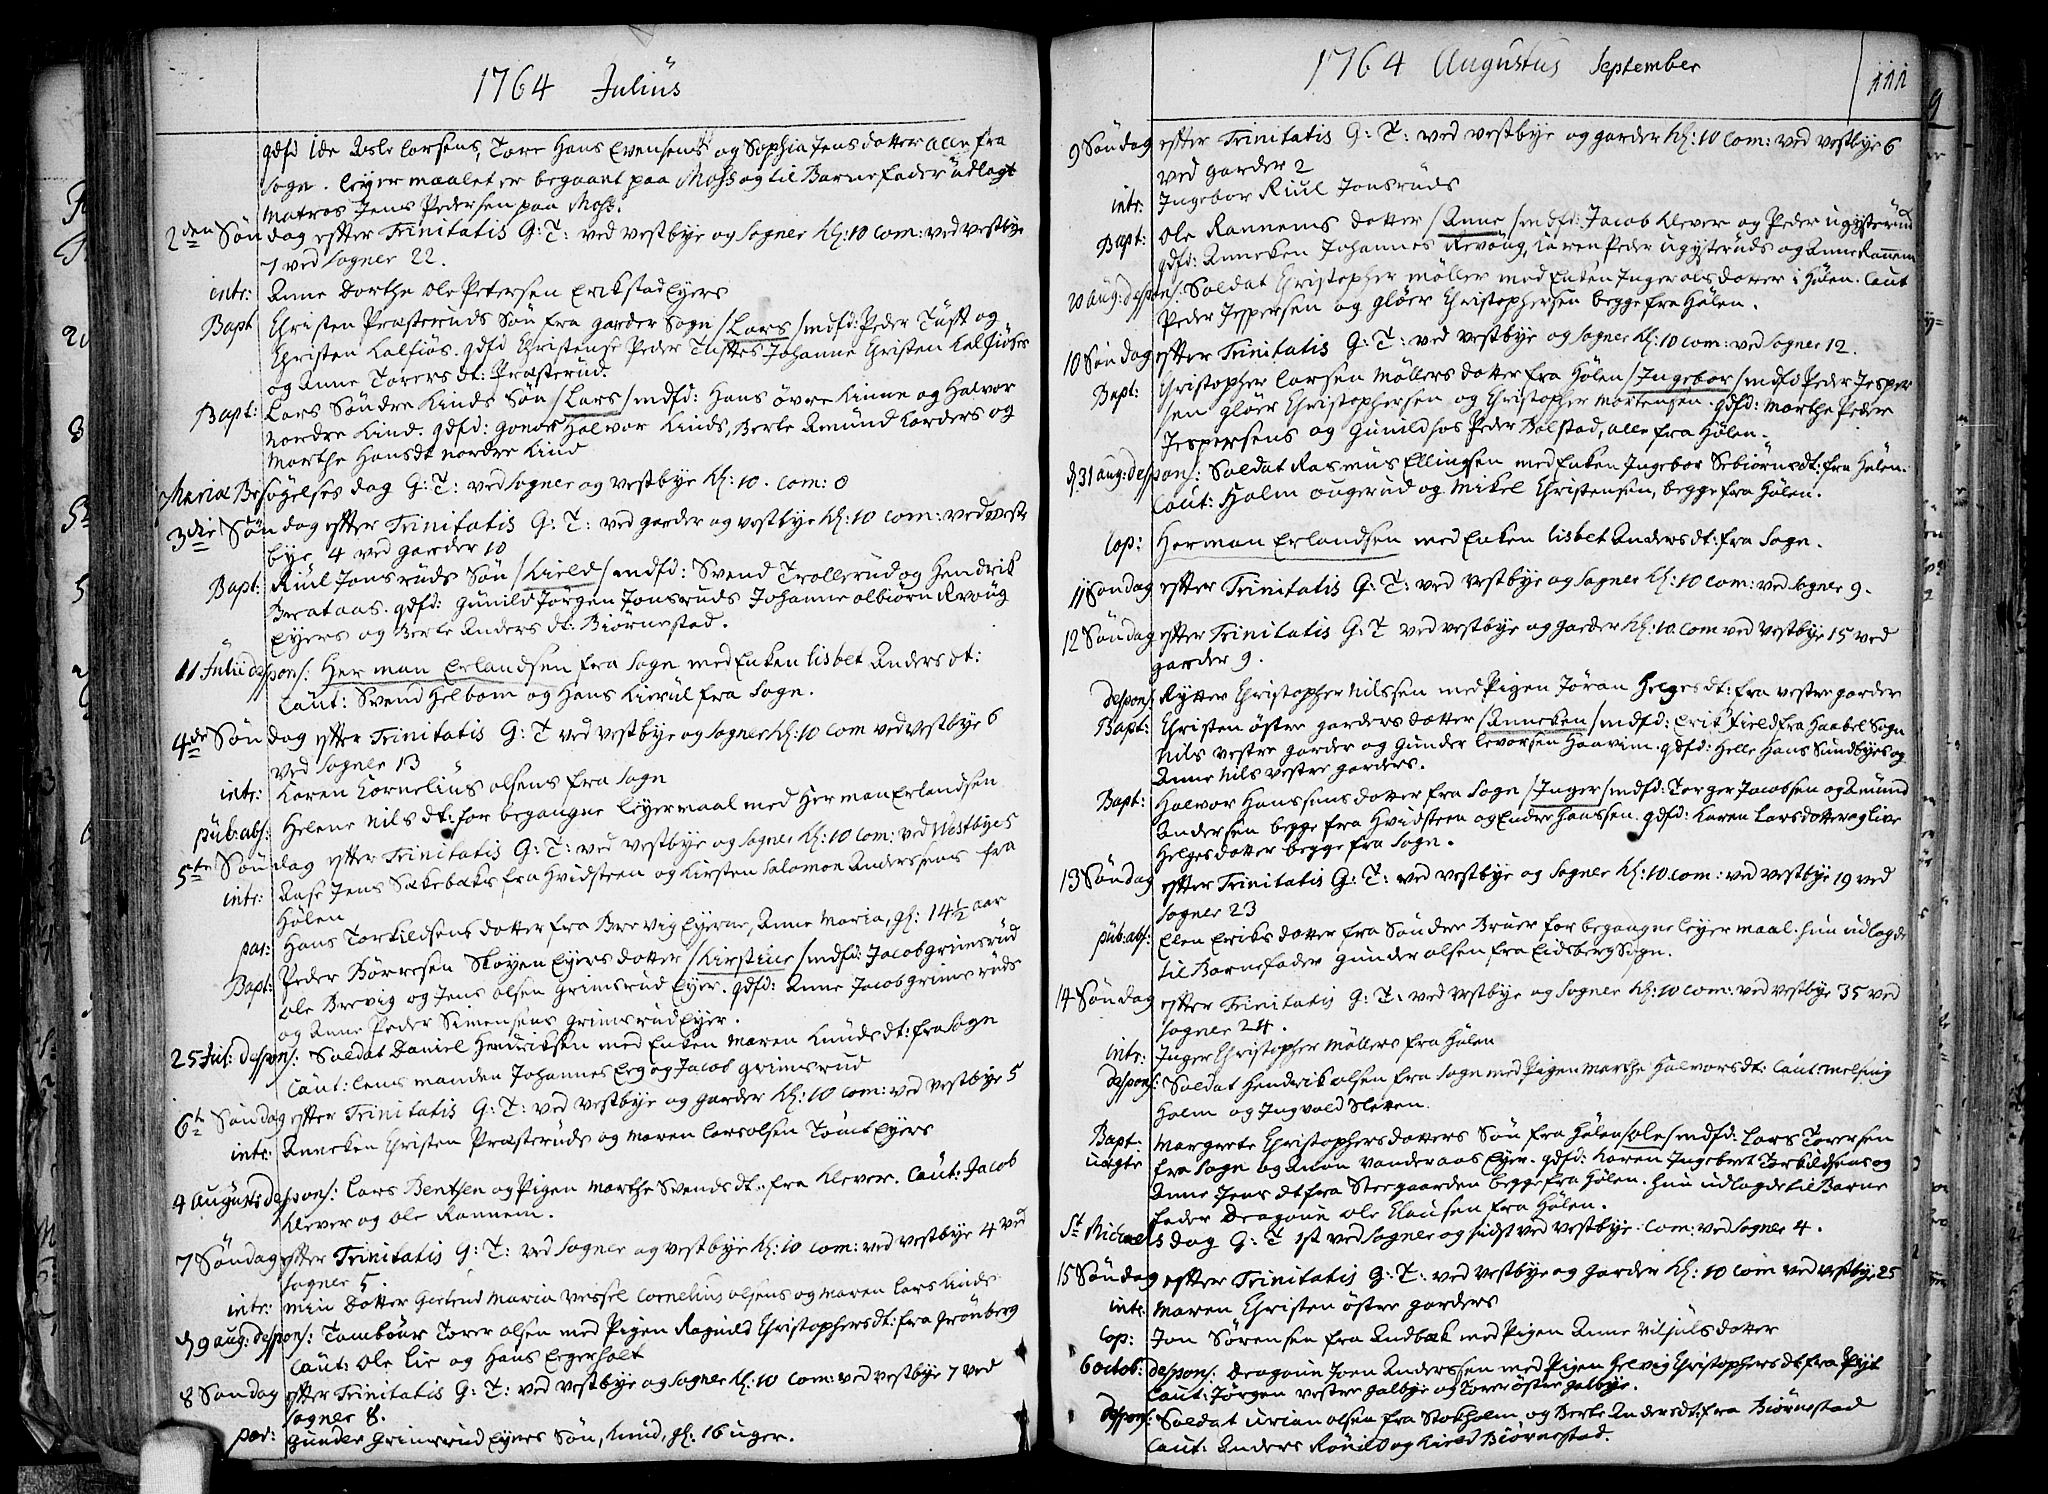 1764 Julius
gdfd Ide Asle Larsens, Tore Hans Evensens og Sophia Jens datter alle fra
Sogn. Leyermaalet er begaaet paa Moss og til Barnefader udlagt
Matros Jens Pedersen paa Moss.
2den Søndag efter Trinitatis G: T: ved Vestbye og Sogner Kl: 10 Com: ved Vestbye
7 ved Sogner 22.
intr: Anne Dorthe Ole Petersen Erikstad Eyers
Bapt Christen Præsteruds Søn fra Garder Sogn /Lars/ mdfd: Peder Tuft og
Christen Kalfiøs. gdfd Christense Peder Tuftes Johanne Christen Kalfiøses
og Anne Torersdt: Præsterud.
Bapt: Lars Søndre Kinds Søn /Lars/ mdfd: Hans øvre Kinne og Halvor
Nordre Kind. gdfd: Halvor Kinds, Berte Amund Korders og
Marthe Hansdt Nordre Kind
Mariæ Besøgelses dag G: T: ved Sogner og Vestbye Kl: 10. Com: 0
3die Søndag efter Trinitatis G: T: ved Garder og Vestbye Kl: 10 Com: ved Vest-
bye 4 ved Garder 10
Bapt: Riul Jonsruds Søn /Kield/ mdfd: Svend Trollerud og Hendrik
Brataas. gdfd: Gunild Jørgen Jonsruds Johanne Olbiørn Revoug
Eyers og Berte Anders dt: Biørnestad.
11 Julii despons: Herman Erlandsen fra Sogn med Enken Lisbet Anders dt:
Caut: Svend Helbom og Hans Kierul fra Sogn.
4de Søndag efter Trinitatis G: T ved Vestbye og Sogner Kl: 10 Com ved Vestbye 6
ved Sogner 13
intr: Karen Cornelius Olsens fra Sogn
pub: abs: Helene Nils dt: for begangne Leyermaal med Herman Erlandsen
5te Søndag efter Trinitatis G: T: ved Vestbye og Sogner Kl: 10 Com: ved Westbye 5
intr: Aase Jens Sækebæks fra Hvidsteen og Kirsten Salomon Anderssens fra
Hølen
par: Hans Torkildsens datter fra Brevig Eyerne, Anne Maria, gl: 14½ aar
Bapt: Peder Børresen Skøyen Eyers datter /Kirstine/ mdfd: Jacob Grimsrud
Ole Brevig og Jens Olsen Grimsrud Eyer. gdfd: Anne Jacob Grimsruds
og Anne Peder Simensens Grimsrud Eyer.
25 Jul: despons: Soldat Daniel Hendriksen med Enken Maren Knudsdt: fra Sogn
Caut: Lensmanden Johannes Eeg og Jacob Grimsrud
6te Søndag efter Trinitatis G: T: ved Vestbye og Garder Kl: 10 Com: ved Vestbye 5
intr: Anneken Christen Præsteruds og Maren Lars Olsen Tomt Eyers
4 Augusti despons: Lars Bentsen og Pigen Marthe Svends dt: fra Klever. Caut: Jacob
Klever og Ole Rannem.
7 Søndag efter Trinitatis G: T: ved Sogner og Vestbye Kl: 10 Com: ved Vestbye 4 ved
Sogner 5.
intr: Min Datter Giertrud Maria Wessel Cornelius Olsens og Maren Lars Kinds
d 9 aug: despons: Tambour Torer Olsen med Pigen Ragnild Christophersdt: fra Grønberg
Caut: Ole Lie og Hans Eegerholt
8 Søndag efter Trinitatis G: T: ved Vestbye og Sogner Kl: 10 Com: ved Vestbye 7 ved
Sogner 8.
par: Gunder Grimsrud Eyers Søn, Knud, gl: 16 uger.
1764 Augustus September
111
9 Søndag efter Trinitatis G: T: ved Vestbye og Garder Kl: 10 Com: ved Vestbye 6
ved Garder 2
intr: Ingebor Riul Jonsruds
Bapt: Ole Rannems datter /Anne/ mdfd: Jacob Klever og Peder Ugysterud
gdfd: Anneken Johannes Revoug, Karen Peder Ugysteruds og Anne Rannem
20 Aug: despons: Soldat Christopher Møller med Enken Inger Olsdatter i Hølen. Caut
Peder Jespersen og Gløer Christophersen begge fra Hølen.
10 Søndag efter Trinitatis G: T: ved Vestbye og Sogner Kl: 10 Com: ved Sogner 12.
Bapt: Christopher Larsen Møllers datter fra Hølen /Ingebor/ mdfd Peder Jesper
sen Gløer Christophersen og Christopher Mortensen. gdfd: Marthe Peder
Jespersens og Gunild hos Peder Bolstad, alle fra Hølen.
d. 31 aug: despons: Soldat Rasmus Ellingsen med Enken Ingebor Sebiørnsdt: fra Hølen.
Caut: Holm Ougerud og Mikel Christensen, begge fra Hølen.
Cop: Herman Erlandsen med Enken Lisbet Andersdt: fra Sogn.
11 Søndag efter Trinitatis G: T: ved Vestbye og Sogner Kl: 10 Com: ved Sogner 9.
12 Søndag efter Trinitatis G: T ved Vestbye og Garder Kl: 10. Com ved Vestbye 15 ved
Garder 9.
Despons: Rytter Christopher Nilssen med Pigen Jøran Helges dt: fra Vestre Garder
Bapt: Christen Østre Garders datter /Anneken/ mdfd: Erik Field fra Haabel Sogn
Nils Vestre Garder og Gunder Levorsen Haavim. gdfd: Helle Hans Sundbyes og
Anne Nils Vestre Garders.
Bapt: Halvor Hanssens datter fra Sogn /Inger/ mdfd: Torger Jacobsen og Amund
Andersen begge fra Hvidsteen og Ender Hanssen. gdfd: Karen Larsdatter og Live
Helges datter begge fra Sogn.
13 Søndag efter Trinitatis G: T: ved Vestbye og Sogner Kl: 10. Com: ved Vestbye 19 ved
Sogner 23
pub: abs: Elen Eriks datter fra Søndre Bruer for begangne Leyermaal. hun udlagde
til Barnefader Gunder Olsen fra Eidsberg Sogn.
14 Søndag efter Trinitatis G: T: ved Vestbye og Sogner Kl: 10 Com: ved Vestbye 35 ved
Sogner 24.
intr: Inger Christopher Møllers fra Hølen
Despons: Soldat Hendrik Olsen fra Sogn med Pigen Marthe Halvorsdt: Caut
Holm og Ingvald Sletten.
Bapt: Margrete Christophersdatters Søn fra Hølen /Ole/ mdfd: Lars Torersen
uægte fra Sogn og Anon Vanderaas Eyer. gdfd: Karen Ingebret Torkildsens og
Anne Jens dt fra Steegaarden begge fra Hølen. hun udlagde til Barne
fader Dragoun Ole Clausen fra Hølen.
St Michaels dag G: T 1st ved Sogner og sidst ved Vestbye: Com: ved Sogner 4.
15 Søndag efter Trinitatis G: T: ved Vestbye og Garder Kl: 10 Com ved Vestbye 25
intr: Maren Christen Østre Garders
Cop: Jon Sørensen fra Andbæk med Pigen Anne Viljuls datter
6 octob: despons: Dragoun Joen Anderssen med Pigen Helvig Christophers dt fra Pijt
Caut: Jørgen Vestre Galbye og Torer Østre Galbye.
Despons: Soldat Urian Olsen fra Stokholm og Berte Andersdt: fra Biørnestad
Caut: Anders Rønild og Kield Biørnestad.